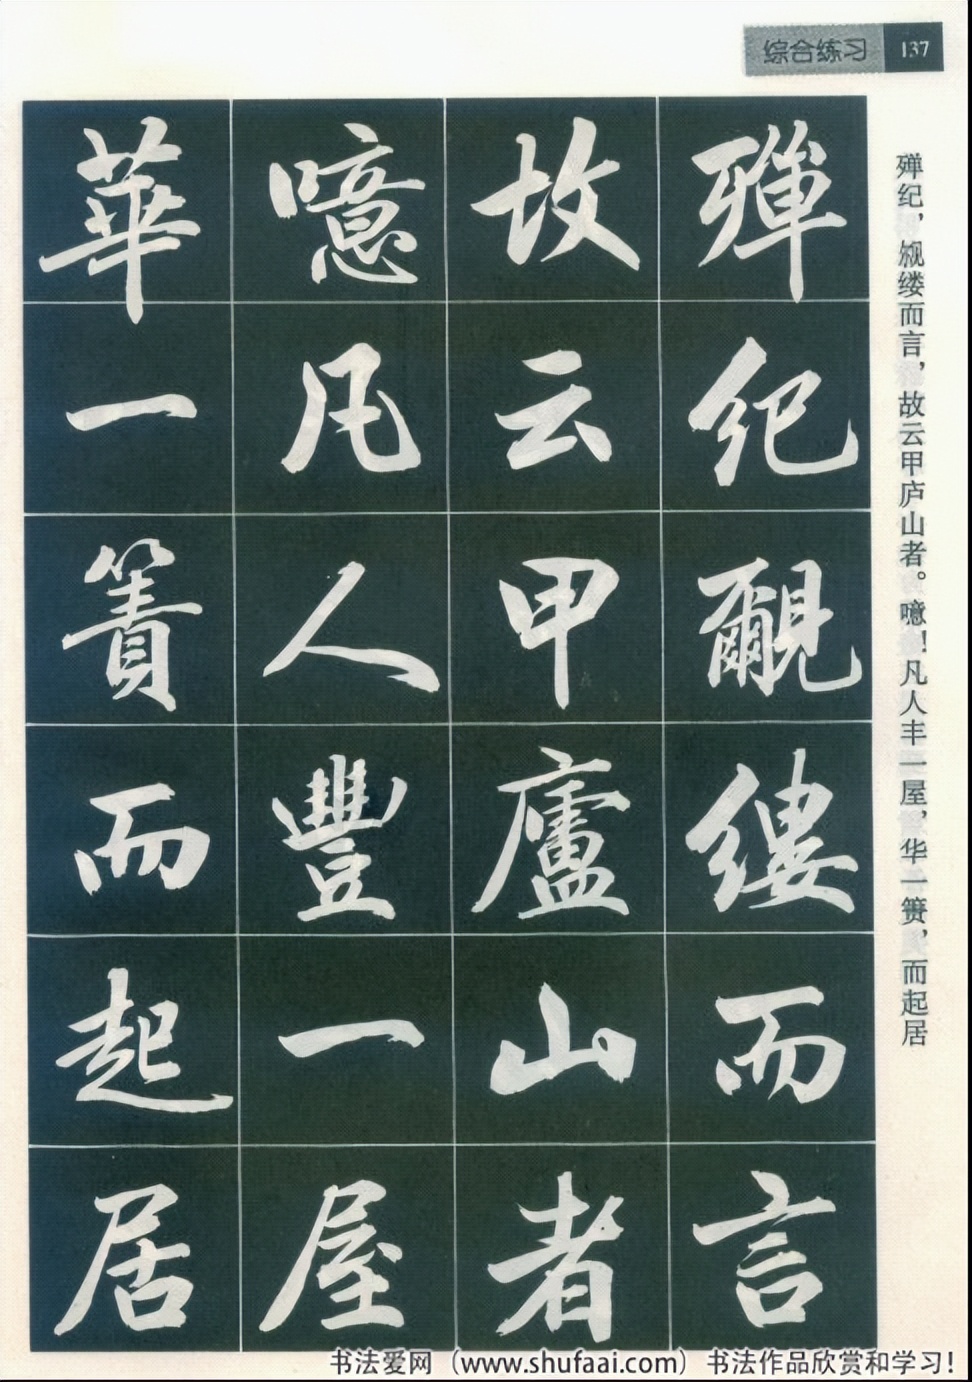 综合练习 137
殫紀覼縷而言
故云甲廬山者
噫凡人豐一屋
華一簀而起居
殚纪，觇缕而言，故云甲庐山者。噫！凡人丰一屋，华一箦，而起居
书法爱网（www.shufaai.com）书法作品欣赏和学习！